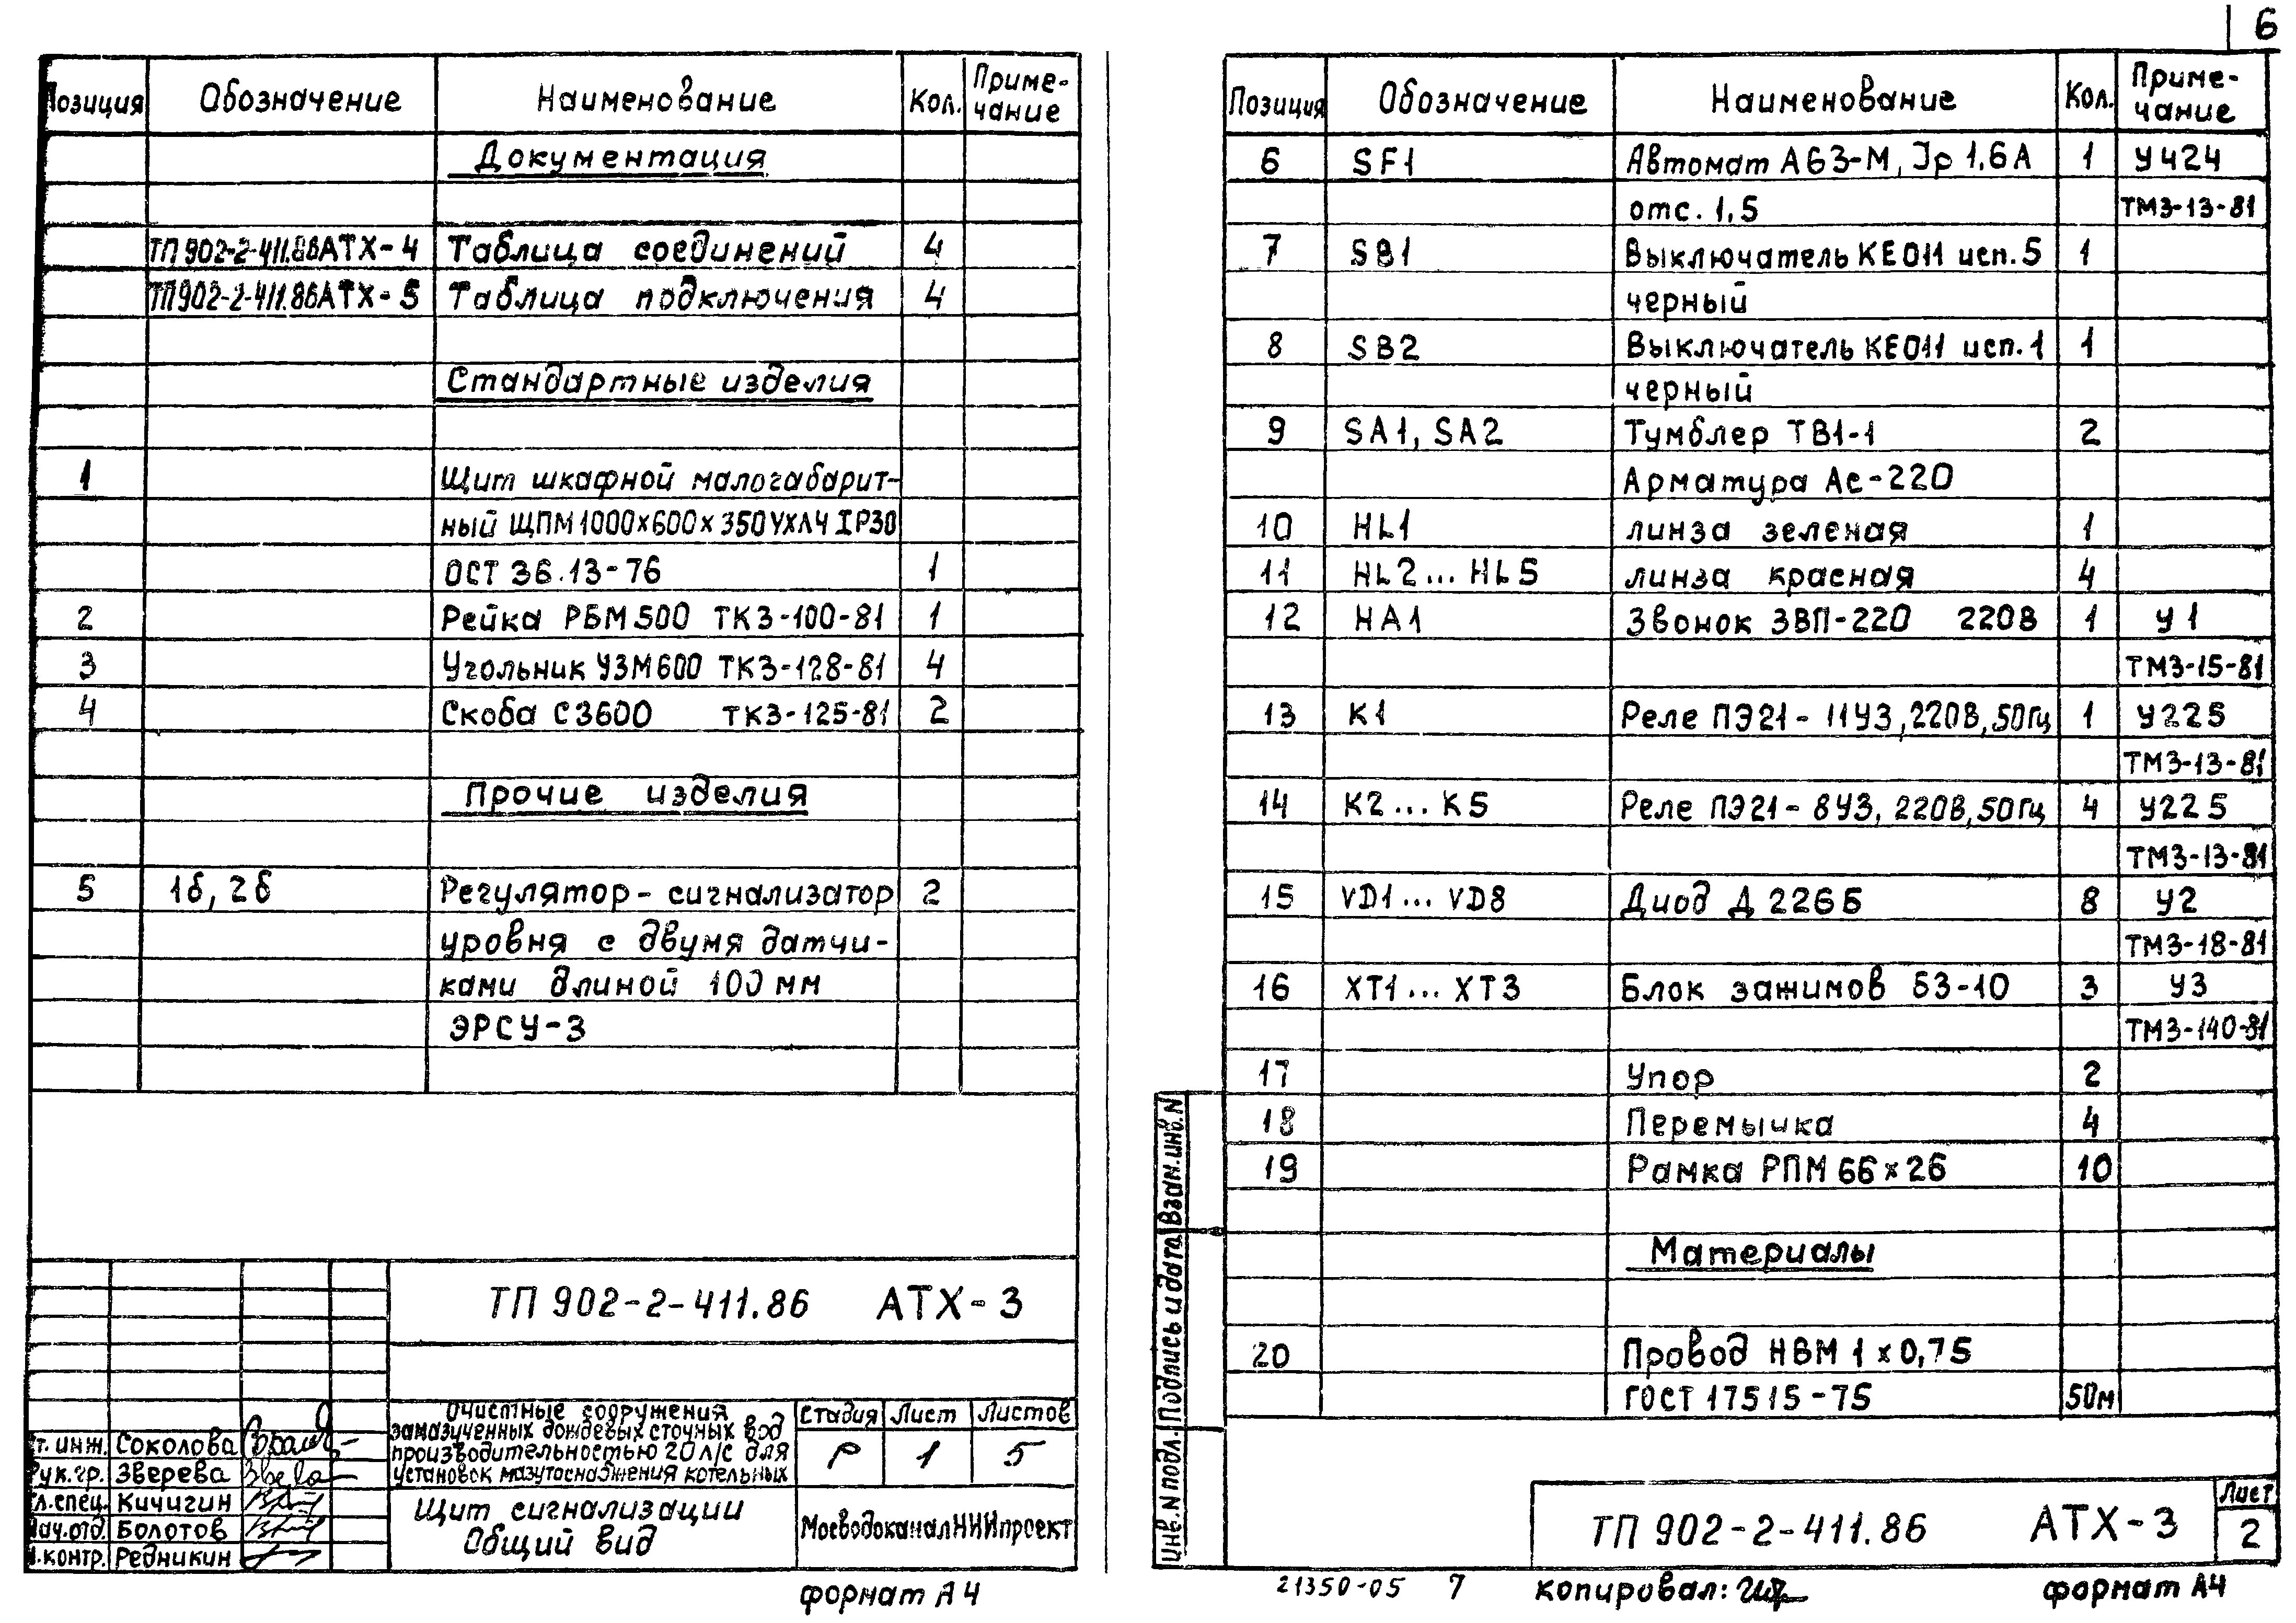 6
Позиция Обозначение Наименование Кол. Приме-
чание
Документация
ТП902-2-411.86АТХ-4 Таблица соединений 4
ТП902-2-411.86АТХ-5 Таблица подключения 4
Стандартные изделия
1 Щит шкафной малогабарит-
ный ЩПМ1000х600х350УХЛ4 IP30
ОСТ 36.13-76 1
2 Рейка РБМ500 ТК3-100-81 1
3 Угольник УЗМ600 ТК3-128-81 4
4 Скоба С3600 ТК3-125-81 2
Прочие изделия
5 1б, 2б Регулятор-сигнализатор 2
уровня с двумя датчи-
ками длиной 100 мм
ЭРСУ-3
ТП 902-2-411.86 АТХ-3
Очистные сооружения
замазученных дождевых сточных вод
производительностью 20 л/с для
установок мазутоснабжения котельных
Стадия Лист Листов
Р 1 5
Ст. инж. Соколова
Рук.гр. Зверева
Гл.спец. Кичигин
Нач.отд. Болотов
Н.контр. Редникин
Щит сигнализации
Общий вид
МосводоканалНИИпроект
формат А4
Позиция Обозначение Наименование Кол. Приме-
чание
6 SF1 Автомат А63-М, Iр 1,6А 1 У424
отс. 1,5 ТМ3-13-81
7 SB1 Выключатель КЕ011 исп.5 1
черный
8 SB2 Выключатель КЕ011 исп.1 1
черный
9 SA1, SA2 Тумблер ТВ1-1 2
Арматура Ас-220
10 HL1 линза зеленая 1
11 HL2... HL5 линза красная 4
12 HA1 Звонок ЗВП-220 220В 1 У1
ТМ3-15-81
13 K1 Реле ПЭ21-11У3,220В,50Гц 1 У225
ТМ3-13-81
14 K2... K5 Реле ПЭ21-8У3, 220В,50Гц 4 У225
ТМ3-13-81
15 VD1... VD8 Диод Д 226Б 8 У2
ТМ3-18-81
16 XT1... XT3 Блок зажимов БЗ-10 3 У3
ТМ3-140-81
17 Упор 2
18 Перемычка 4
19 Рамка РПМ 66х26 10
Материалы
20 Провод НВМ 1х0,75
ГОСТ 17515-75 50м
Инв. N подл. Подпись и дата Взам.инв.N
ТП 902-2-411.86 АТХ-3
Лист
2
21350-05 7 копировал: формат А4